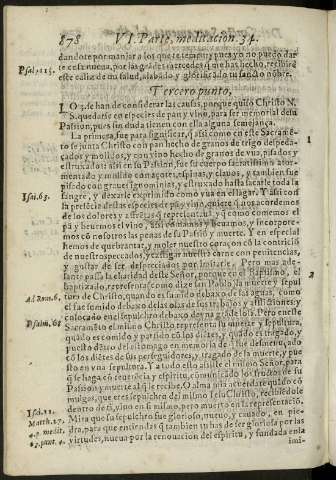 878 VI. Parte, meditacion. 34.
dandote por manjar a los que te temen; pues yo no puedo dar-
te essa nueua, por las grandes mercedes q̃ me has hecho, recibirè
Psal. 115. este caliz de mi salud, alabãdo y glorificãdo tu sancto nõbre.
Tercero punto.
LO 3. se han de considerar las causas, porque quiso Christo N.
S. quedarse en especies de pan y vino, para ser memorial de su
Passion, pues sin duda tienen con ella alguna semejança.
La primera, fue para significar, q̃ assi como en este Sacramẽ-
to se junta Christo con pan hecho de granos de trigo despeda-
çados y molidos, y con vino hecho de granos de vua, pisados y
estrujados: assi en su Passion, fue su cuerpo sacratissimo ator-
mentado y molido con açotes, espinas, y clauos, y tambien fue
pisado con graues ignominias, y estrujado hasta sacarle toda la
Isai. 63. sangre, y dexarle exprimido como vua en el lagar. Y assi con
la presẽcia destas especies de pã y vino, quiere q̃ nos acordemos
de los dolores y afrẽtas q̃ representan, y q̃ como comemos el
pã y beuemos el vino, assi comamos y beuamos, y incorpore-
mos cõ nosotros las penas de su Passiõ y muerte. Y en especial
hemos de quebrantar, y moler nuestro coraçon cõ la contriciõ
de nuestros peccados, y castigar nuestra carne con penitencias,
y gustar de ser despreciados por imitarle. Pero mas ade-
lante passa la charidad deste Señor, porque en el Baptismo, el
Ad Rom. 6. baptizado, representa como dize san Pablo, la muerte y sepul
tura de Christo, quando es sumido debaxo de las aguas, como
el fue sumido debaxo de las olas de sus trabajos y aflictiones; y
Psalm. 68 colocado en el sepulchro debaxo de vna grãde losa. Pero en este
Sacramẽto el mismo Christo representa su muerte y sepultura,
quãdo es comido y partido cõ los diẽtes, y quãdo es tragado, y
puesto dẽtro del estomago en memoria de q̃ fue desmenuçado
cõ los diẽtes de sus perseguidores, y tragado de la muerte, y pue
sto en vna sepultura. Y a todo esto assiste el mismo Señor, para
q̃ se haga cõ reuerẽcia y espiritu, comunicãdo los fructos de su
Passion y muerte al q̃ le recibe. O alma mia acuerdate quãdo cõ
mulgas, que eres sepulchro del mismo Iesu Christo, recibiẽdole
Isai. 11. dentro de ti, viuo en si mismo, pero muerto en la representaciõ.
Matth. 27. Mira que su sepulchro fue glorioso, nueuo, y cauado, en pie-
dra, para que entiendas q̃ tambien tu has de ser gloriosa por las
virtudes, nueua por la renouacion del espiritu, y fundada en la
imi-
1
2